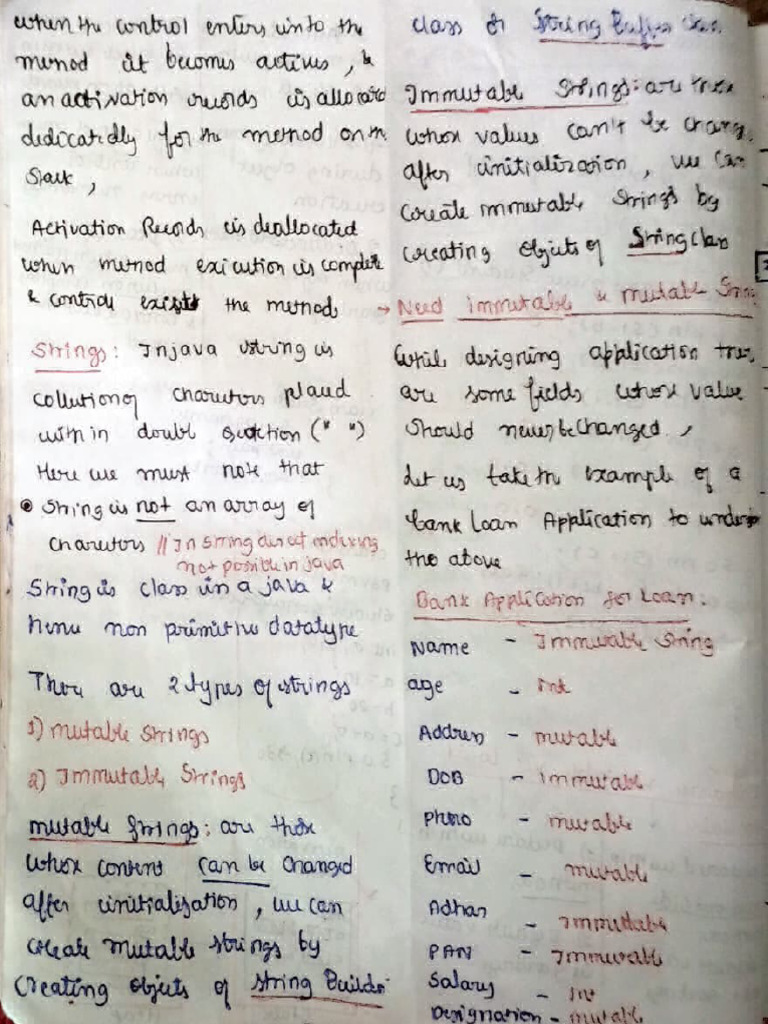 when the control enters into the
method it becomes actives, &
an activation records is allocated
dedicatedly for the method on the
Stack,
Activation Records is deallocated
when method execution is complete
& control exists the methods
Strings: In java string is
collection of charectors placed
with in double quotetion (" ")
Here we must note that
String is not an array of
charectors // In string direct indexing
not possible in java
String is class in a java &
hence non primitive datatype
There are 2 types of strings
1) mutable Strings
2) Immutable Strings
mutable Strings: are those
whose content can be changed
after initialization, we can
create mutable strings by
Creating objects of String Builder
class or String Buffer class
Immutable Strings: are those
whose values can't be change
after initialization, we can
create immutable Strings by
creating objects of String class
→ Need immutable & mutable String
While designing application there
are some fields whose value
should never be changed.,
Let us take the example of a
bank Loan Application to understand
the above
Bank Application for Loan:
Name - Immutable String
age - int
Address - mutable
DOB - immutable
Phno - mutable
Email - mutable
Adhar - Immutable
PAN - Immutable
Salary - int
Designation - mutable